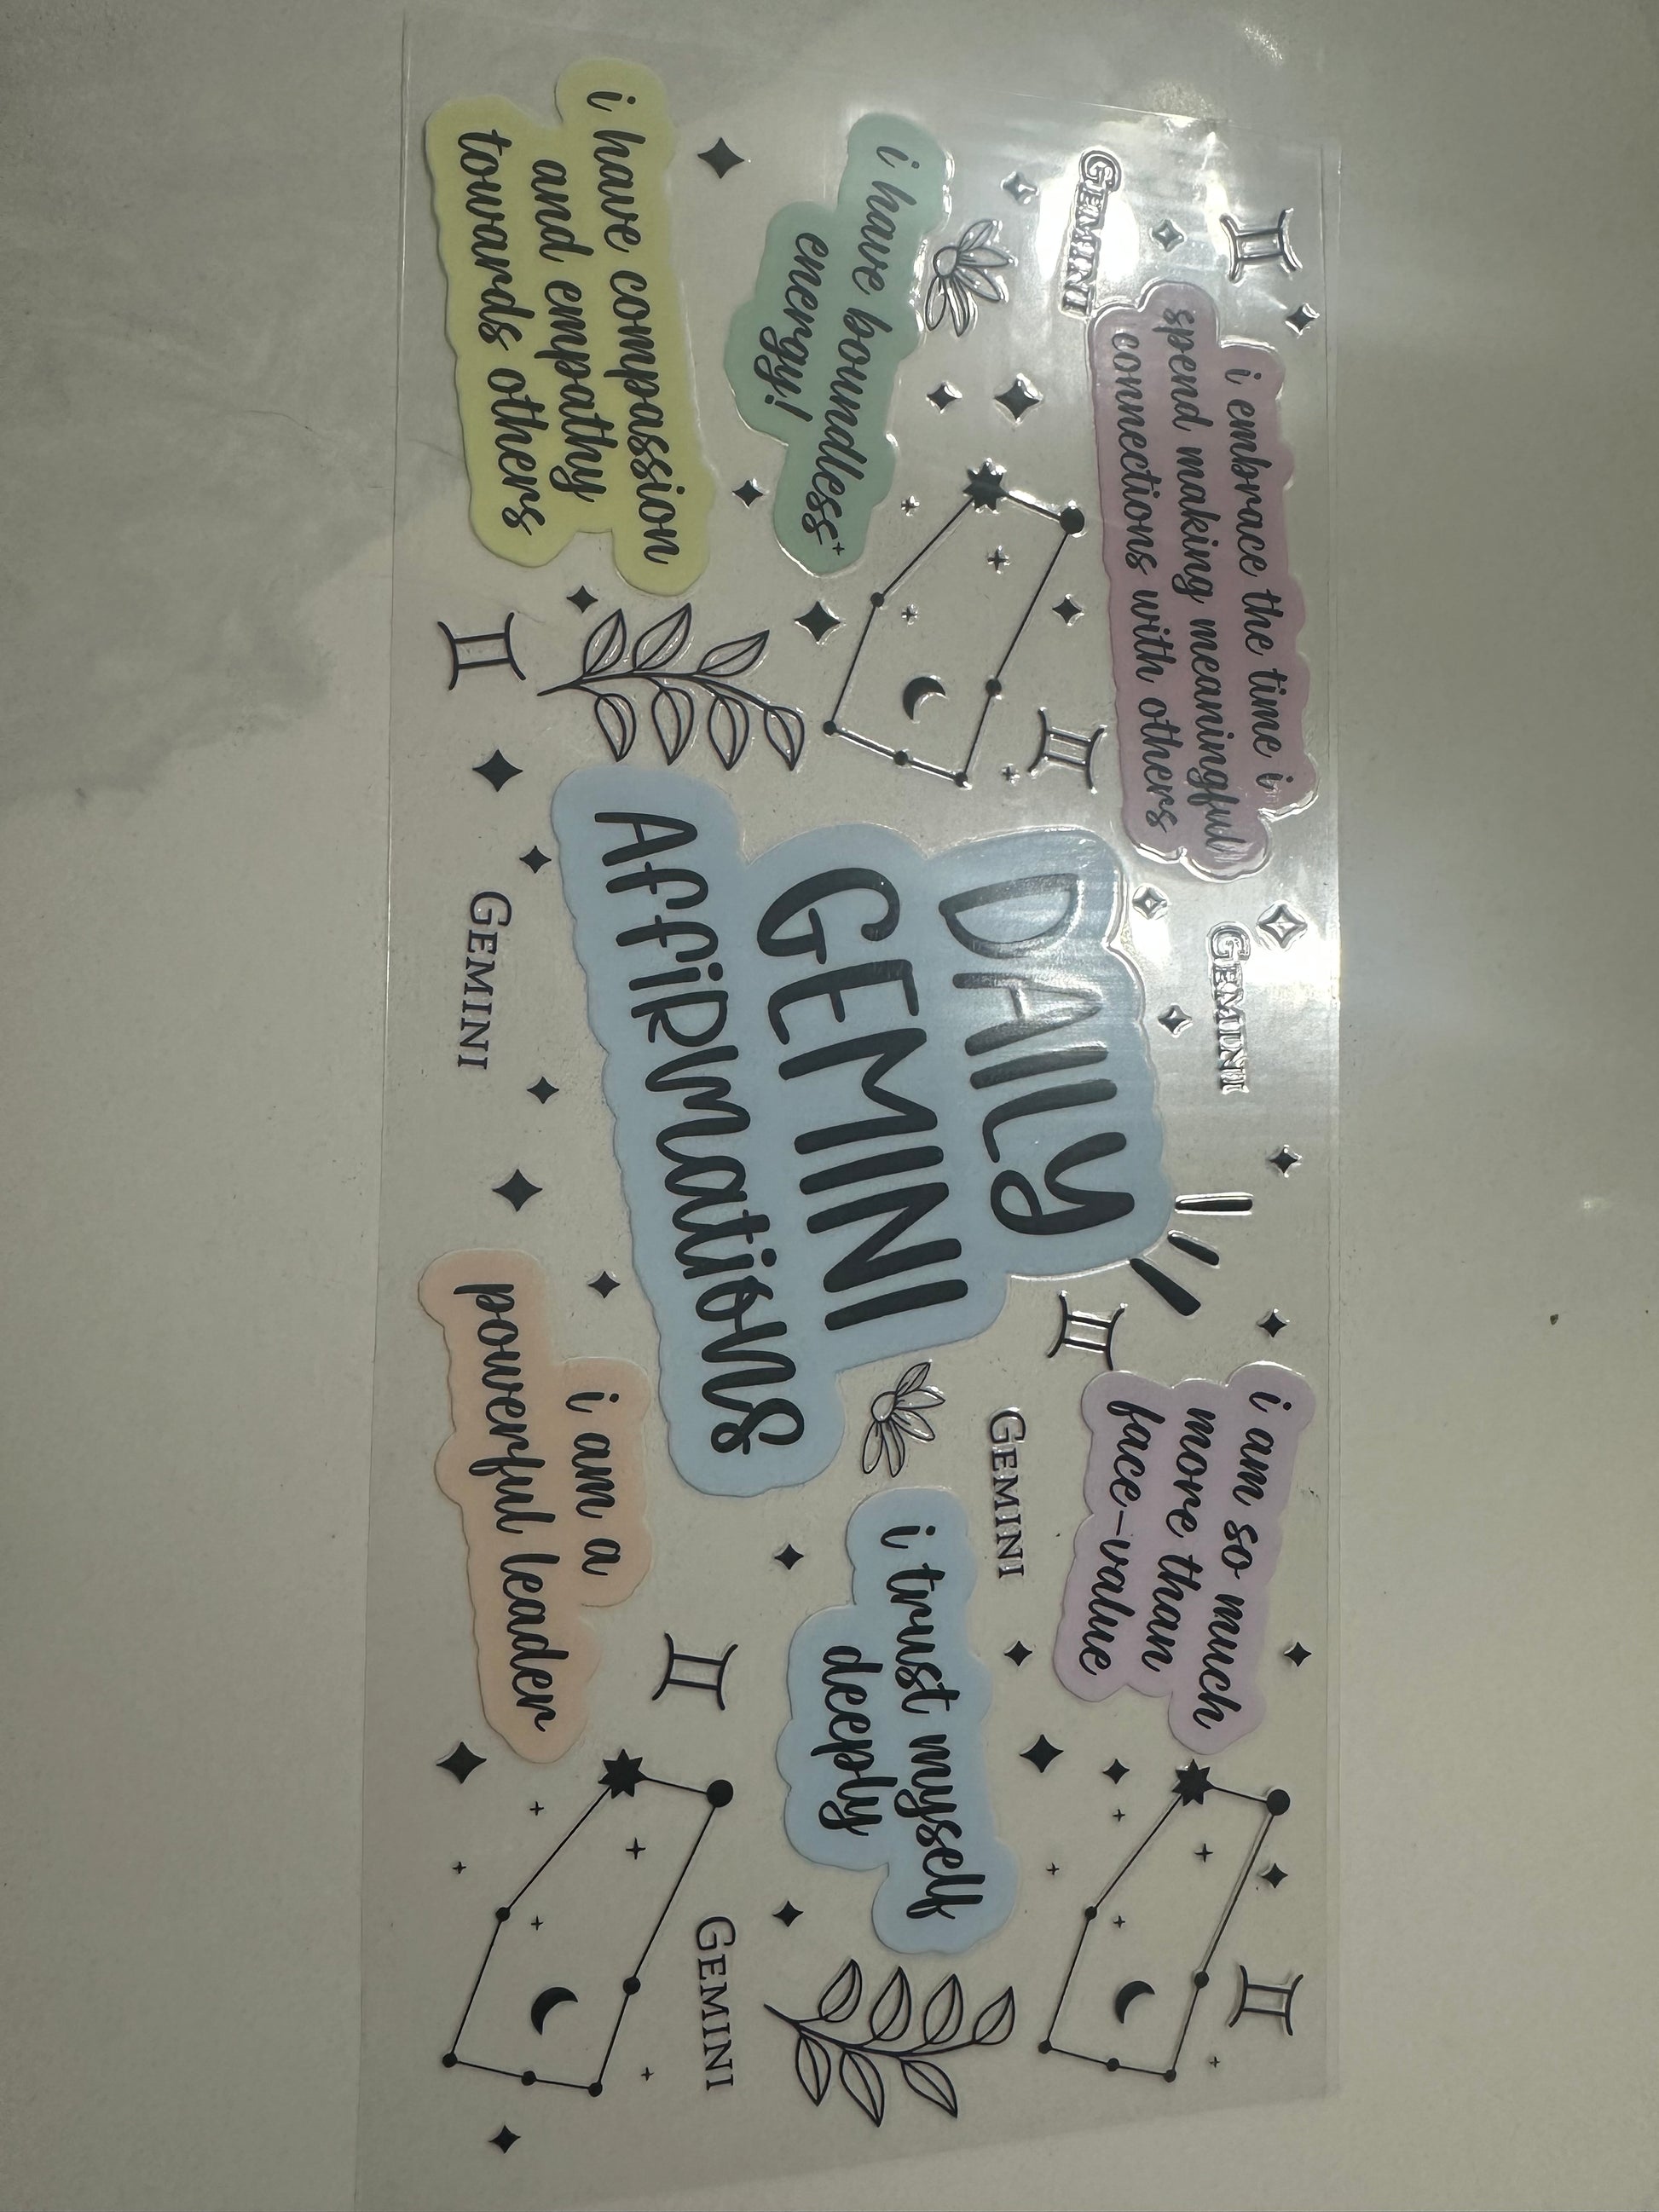 GEMINI
i embrace the time i
spend making meaningful
connections with others
i have boundless
energy!
i have compassion
and empathy
towards others
GEMINI
DAILY
GEMINI
AFFIRMATIONS
GEMINI
i am so much
more than
face-value
GEMINI
i trust myself
deeply
i am a
powerful leader
GEMINI